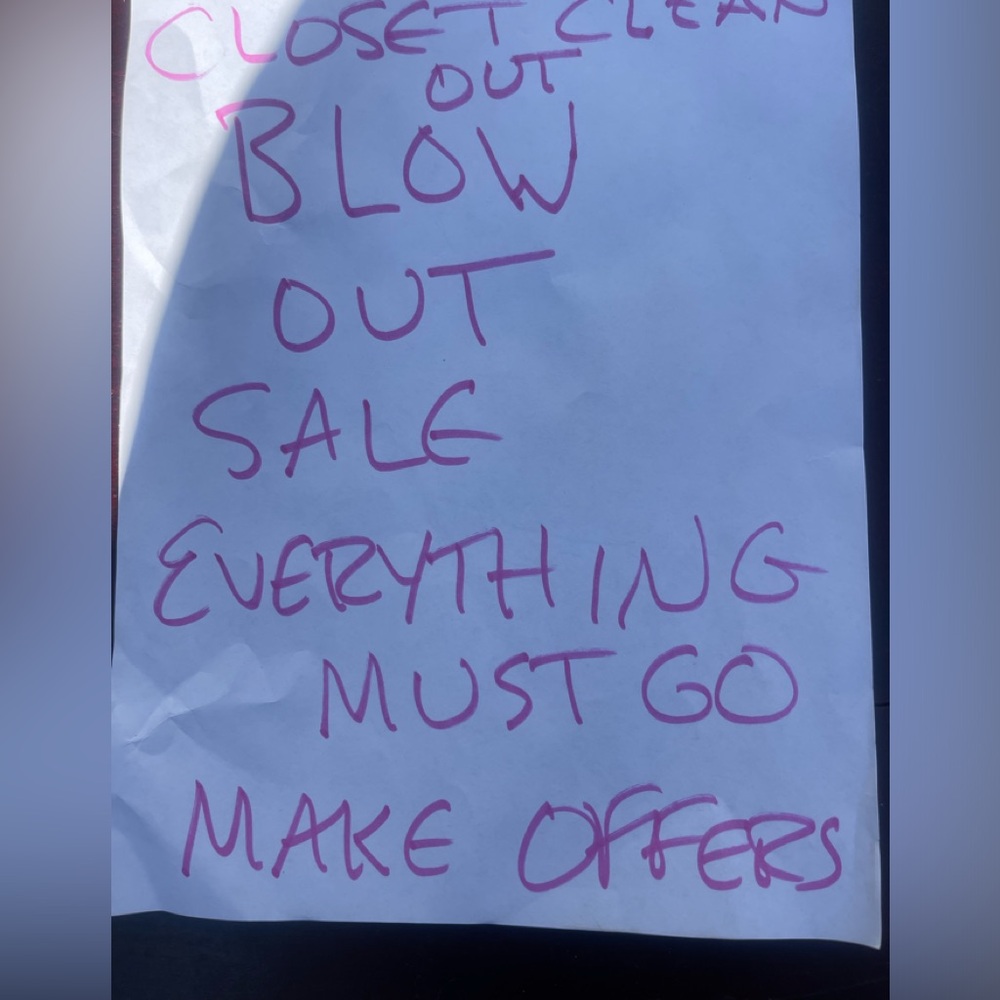 CLOSET CLEAN
OUT
BLOW
OUT
SALE
EVERYTHING
MUST GO
MAKE OFFERS